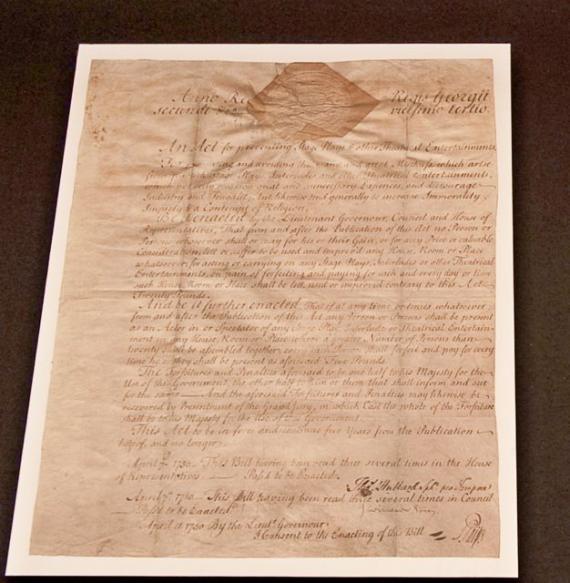 Anno Re Regis Georgii
secundi vicesimo tertio.
An Act for preventing Stage Plays & other Theatrical Entertainments
For preventing and avoiding the many and great Mischiefs which arise
from publick Stage Plays, Interludes and other Theatrical Entertainments,
which not only occasion great and unnecessary Expences, and discourage
Industry and Frugality, but likewise tend generally to increase Immorality,
Impiety & a Contempt of Religion.
Be it enacted by the Lieutenant Governour, Council and House of
Representatives, That from and after the Publication of this Act no Person or
Persons whosoever shall or may for his or their Gain, or for any Price or valuable
Consideration, lett or suffer to be used and improv'd any House, Room or Place
whatsoever for acting or carrying on any Stage Plays, Interludes or other Theatrical
Entertainments, on pain of forfeiting and paying for each and every day or time
such House, Room or Place shall be lett, used or improved contrary to this Act
Twenty Pounds.
And be it further enacted, That if at any time or times whatsoever
from and after the Publication of this Act any Person or Persons shall be present
as an Actor in or Spectator of any Stage Play, Interlude or Theatrical Entertain-
ment in any House, Room or Place where a greater Number of Persons than
twenty shall be assembled together, every such Person shall forfeit and pay for every
time he or they shall be present as aforesaid Five Pounds.
The Forfeitures and Penalties aforesaid to be one half to his Majesty for the
Use of the Government, the other half to him or them that shall inform and sue
for the same And the aforesaid Forfeitures and Penalties may likewise be
recovered by Presentment of the Grand Jury, in which Case the whole of the Forfeiture
shall be to his Majesty for the Use of the Government.
This Act to be in force and continue five Years from the Publication
hereof, and no longer.
April 1750 This Bill having been read three several times in the House
of Representatives Pass'd to be Enacted.
Hubbard Spkr pro Tempore
April 1750 This Bill having been read three several times in Council
Pass'd to be Enacted
April 1750 By the Lieut. Governour
I Consent to the Enacting of this Bill